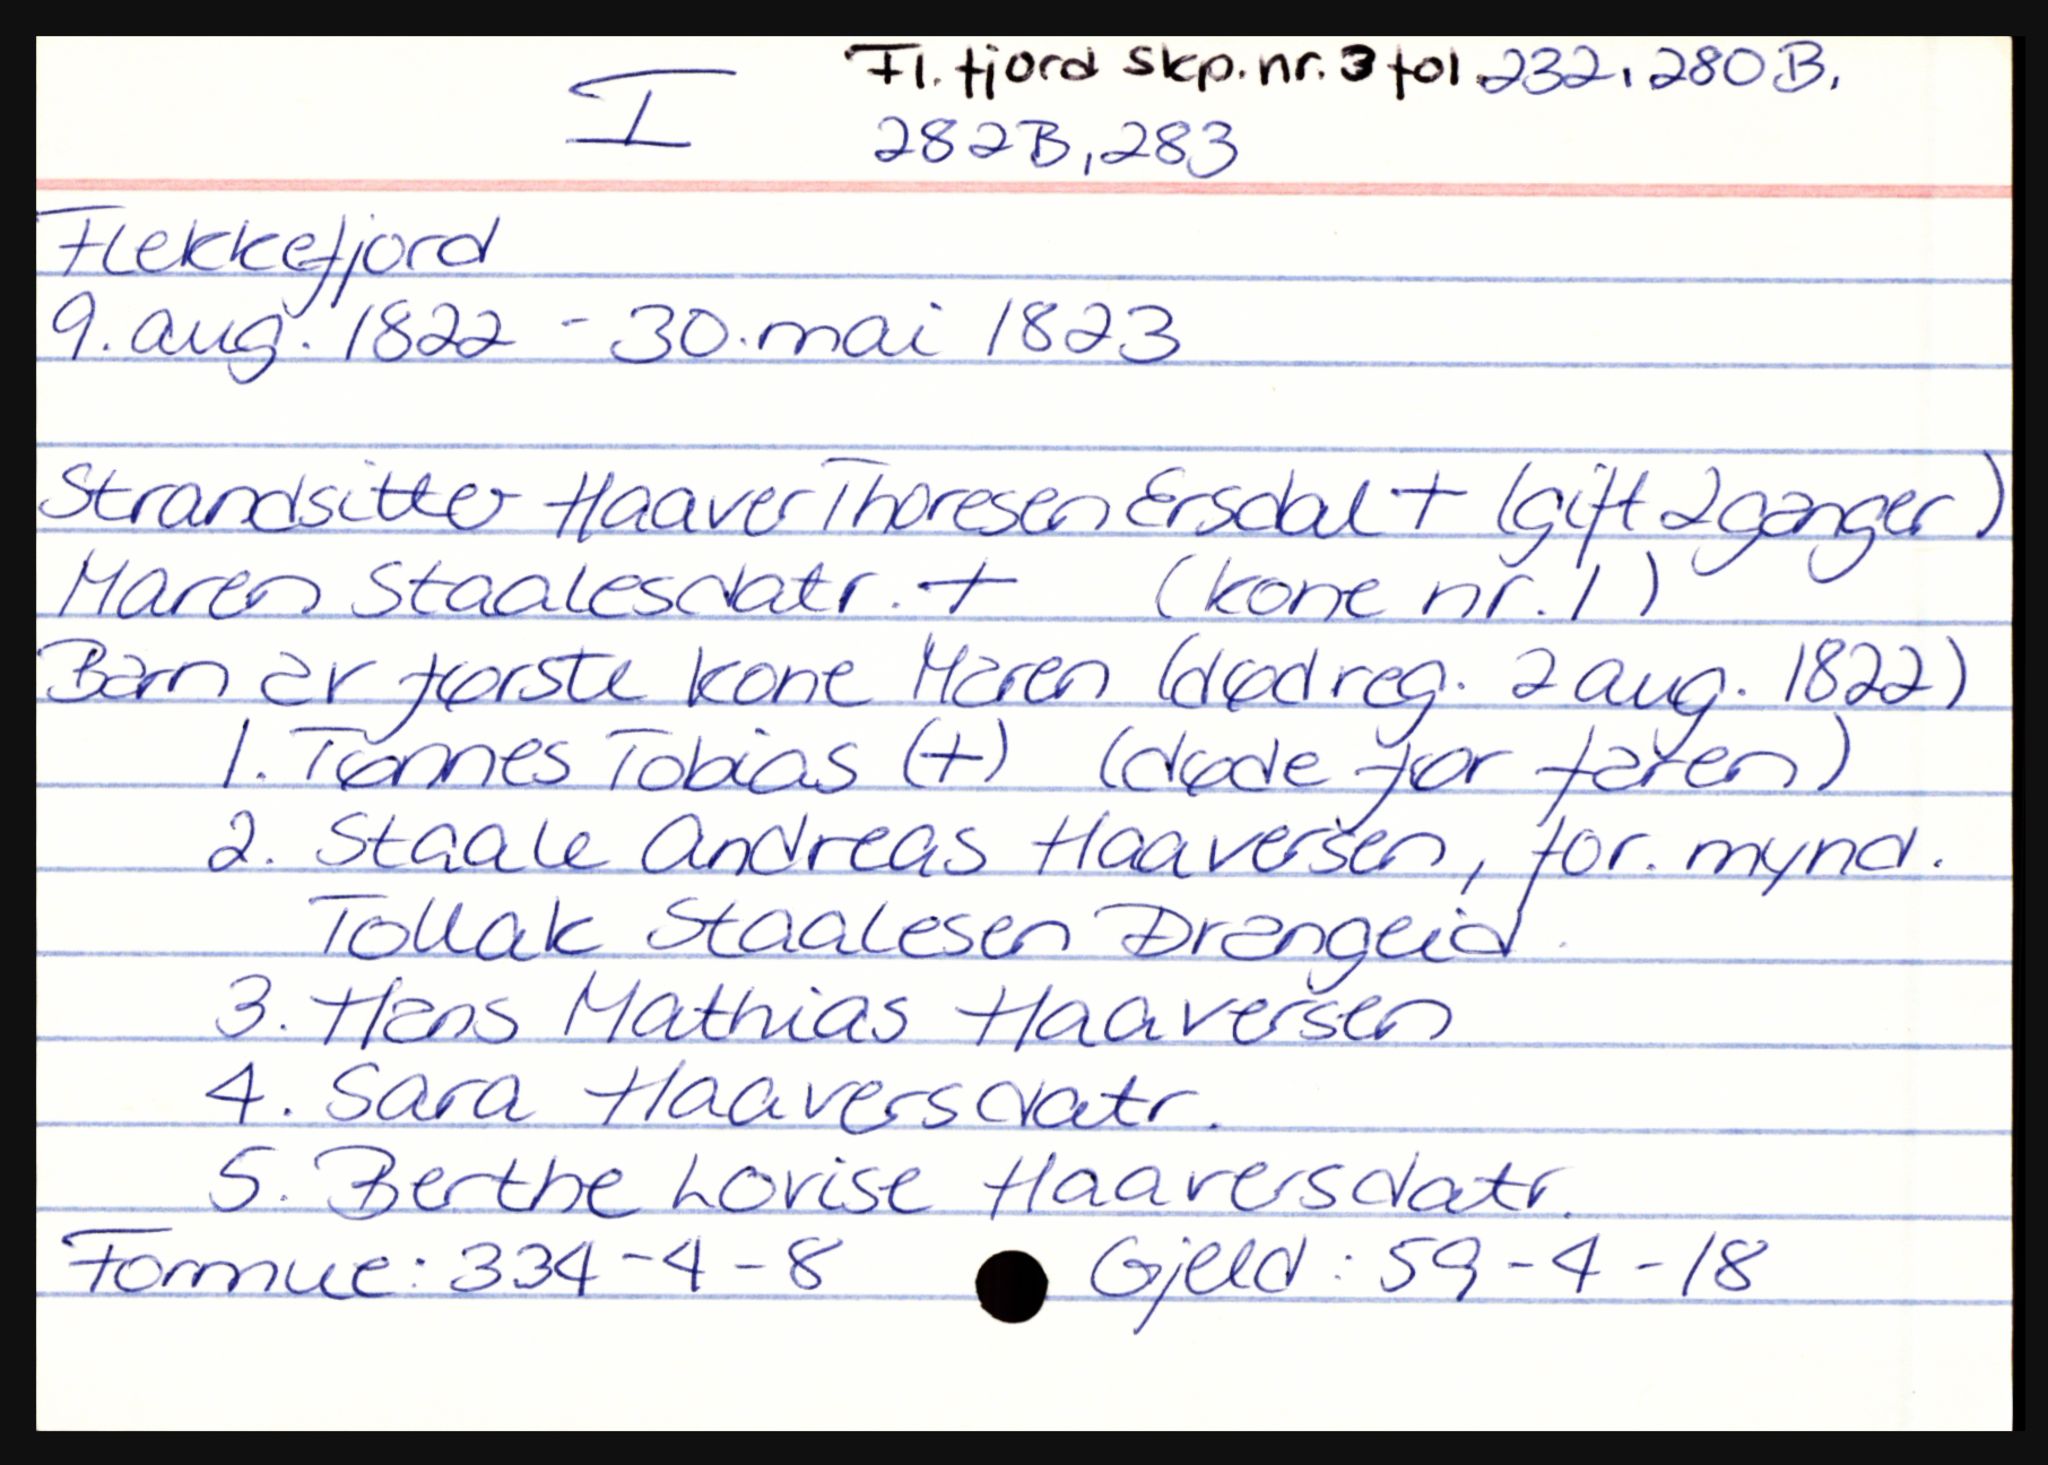 I Fl.fjord Skp.nr.3 fol.232, 280B,
282B, 283
Flekkefjord
9. aug. 1822 - 30. mai 1823
Strandsitter Haaver Thoresen Ersdal + (gift 2 ganger)
Maren Staalesdatr. + (kone nr. 1)
Barn av første kone Maren (død reg. 2 aug. 1822)
1. Tønnes Tobias (+) (døde før faren)
2. Staale Andreas Haaversen, for. mynd.
Tollak Staalesen Drangeid.
3. Hans Mathias Haaversen
4. Sara Haaversdatr.
5. Berthe Lovise Haaversdatr.
Formue: 334-4-8 Gjeld: 59-4-18